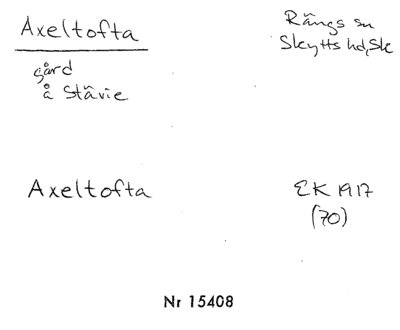 Axeltofta
Rängs sn
Skytts hd, Sk
gård
å Stävie
Axeltofta
EK 1917
(70)
Nr 15408